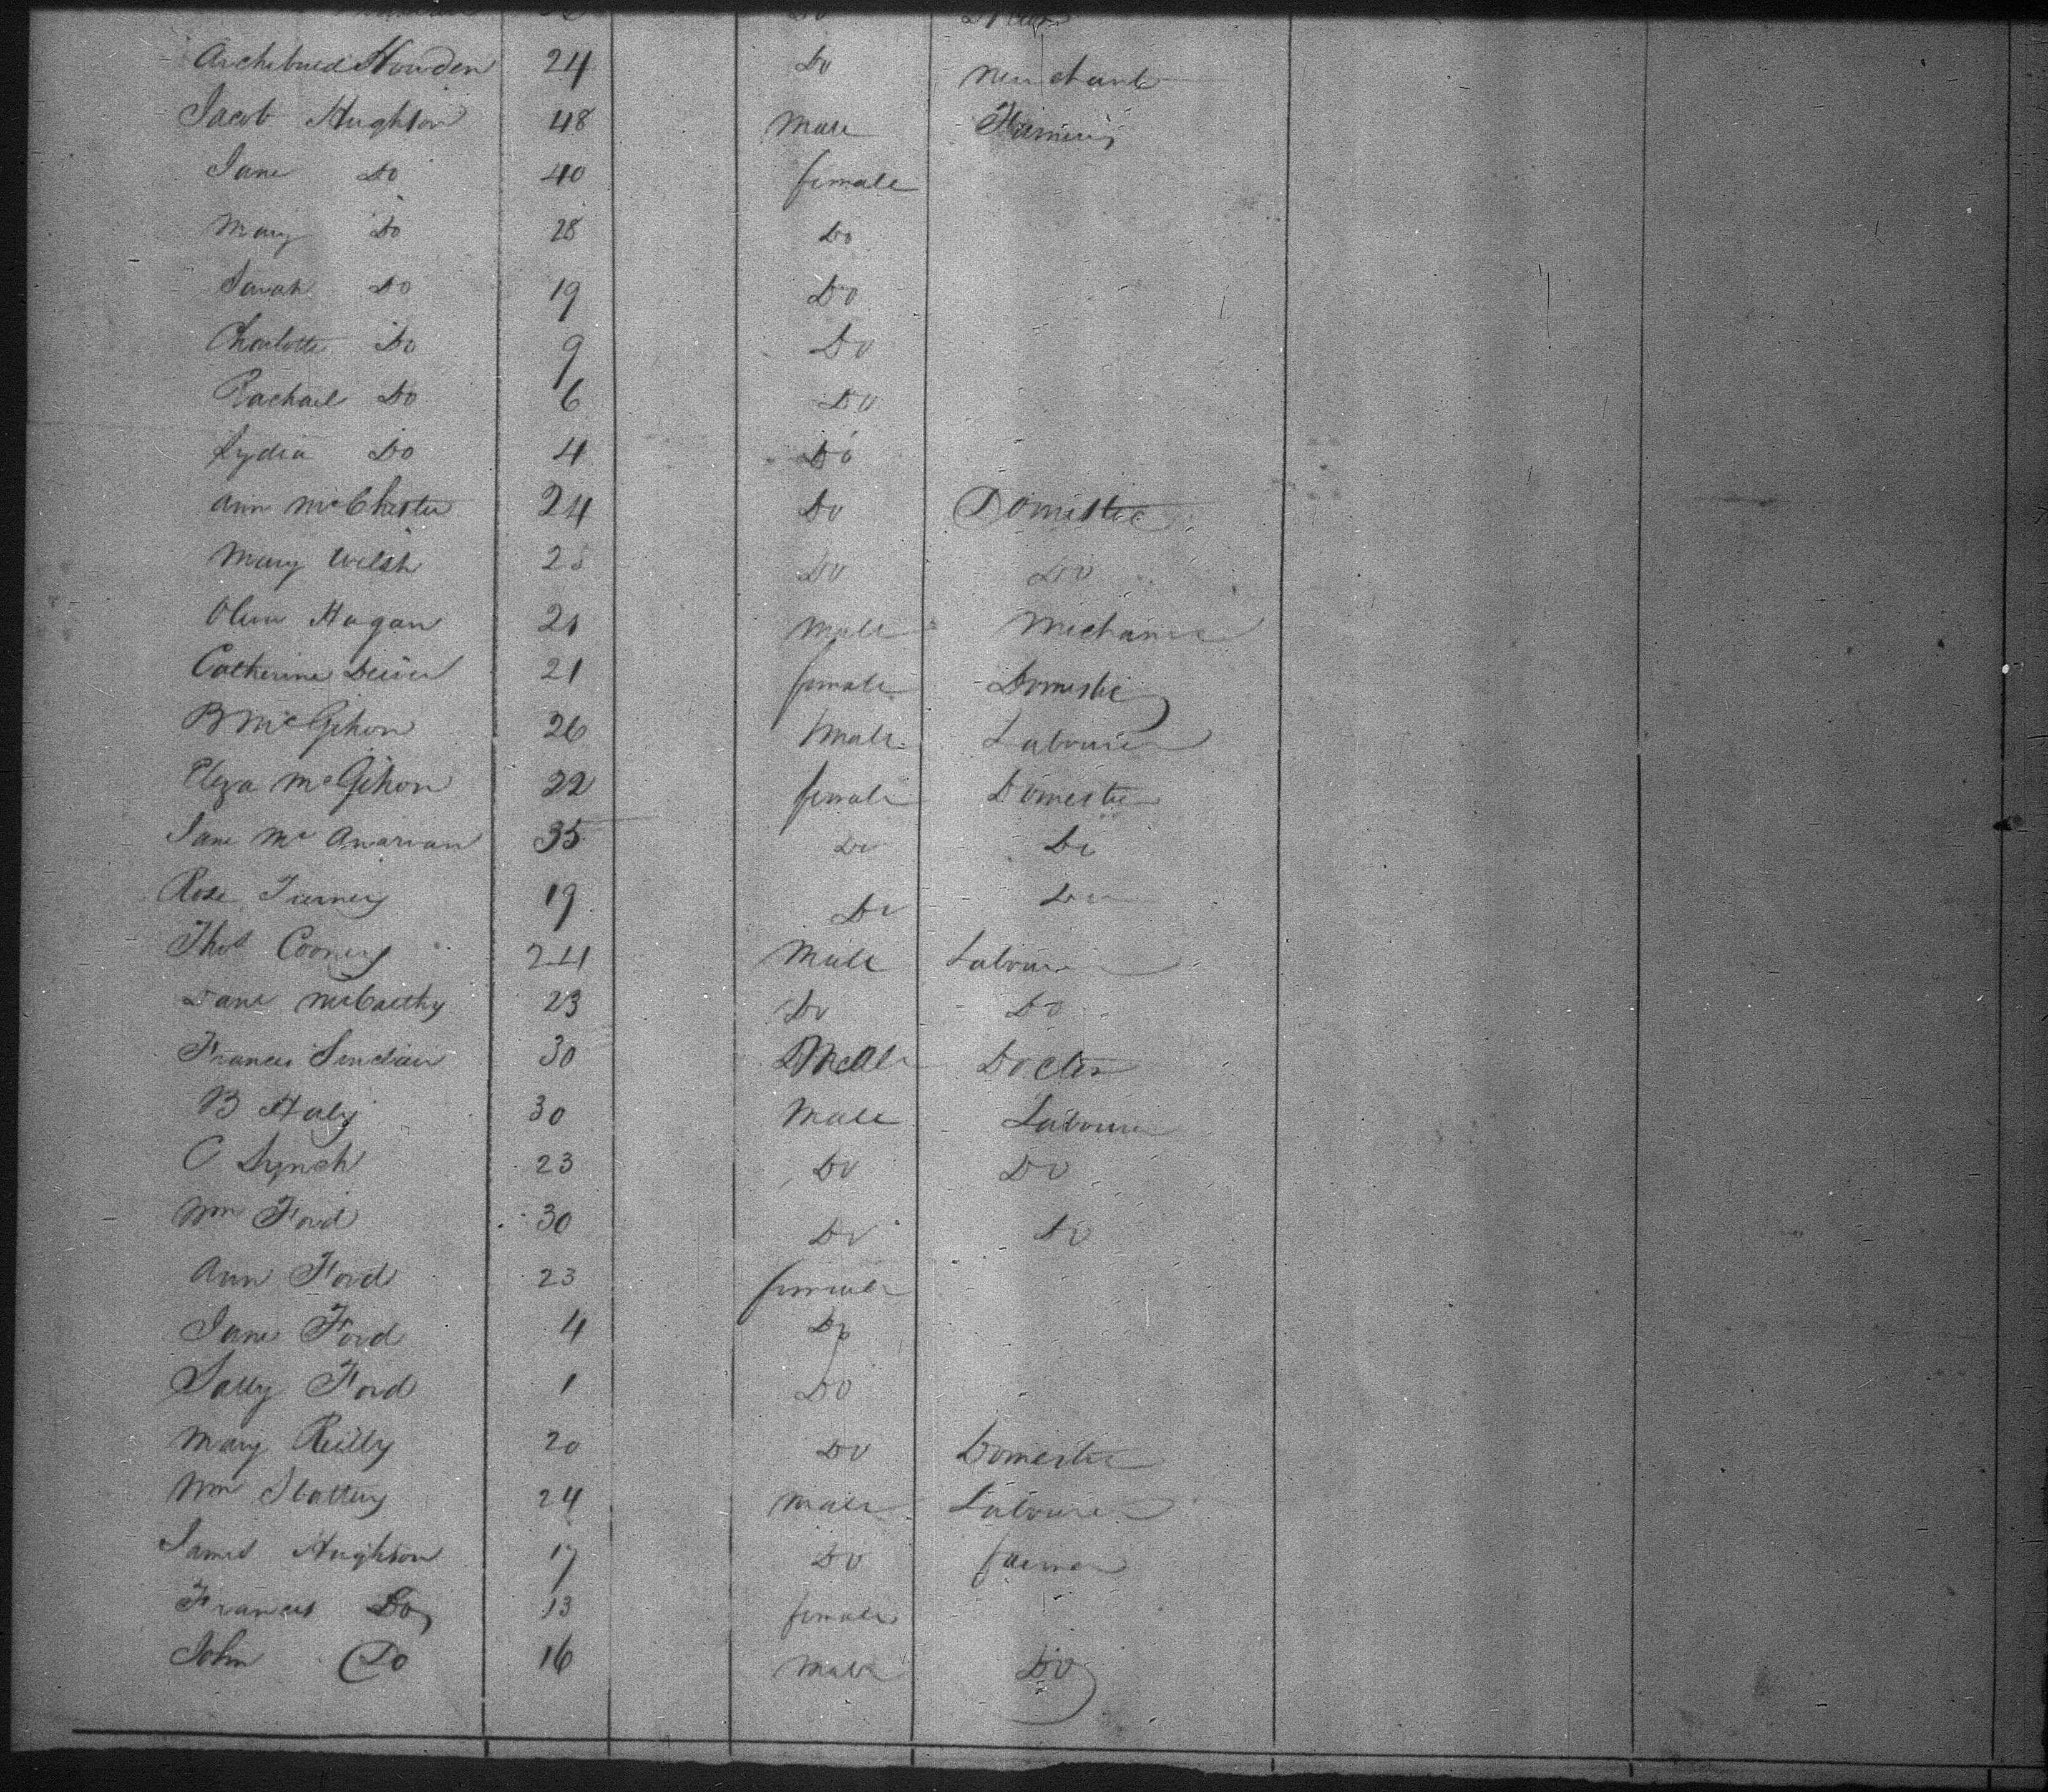 Archibald Howden 24 Do Merchant
Jacob Hughton 48 Male Farmer
Jane Do 40 female
Mary Do 28 Do
Sarah Do 19 Do
Charlotte Do 9 Do
Rachael Do 6 Do
Lydia Do 4 Do
Ann McChester 24 Do Domestic
Mary Welsh Do Do
Oliver Hagan 21 Male Mechanic
Catherine 21 female Domestic
B McGihon 26 Male Labourer
Eliza McGihon 22 female Domestic
Jane Mc 35 Do Do
Rose Tierney 19 Do Do
Thos Cooney 24 Male Labourer
Danl McCarthy 23 Do Do
Francis Sinclair 30 Male Doctor
B Haly 30 Male Labourer
C Lynch 23 Do Do
Wm Ford 30 Do Do
Ann Ford 23 female
Jane Ford 4 Do
Sally Ford 1 Do
Mary Reilly 20 Do Domestic
Wm Slattery 24 Male Labourer
James Hughton 17 Do farmer
Frances Do 13 female
John Do 16 Male Do